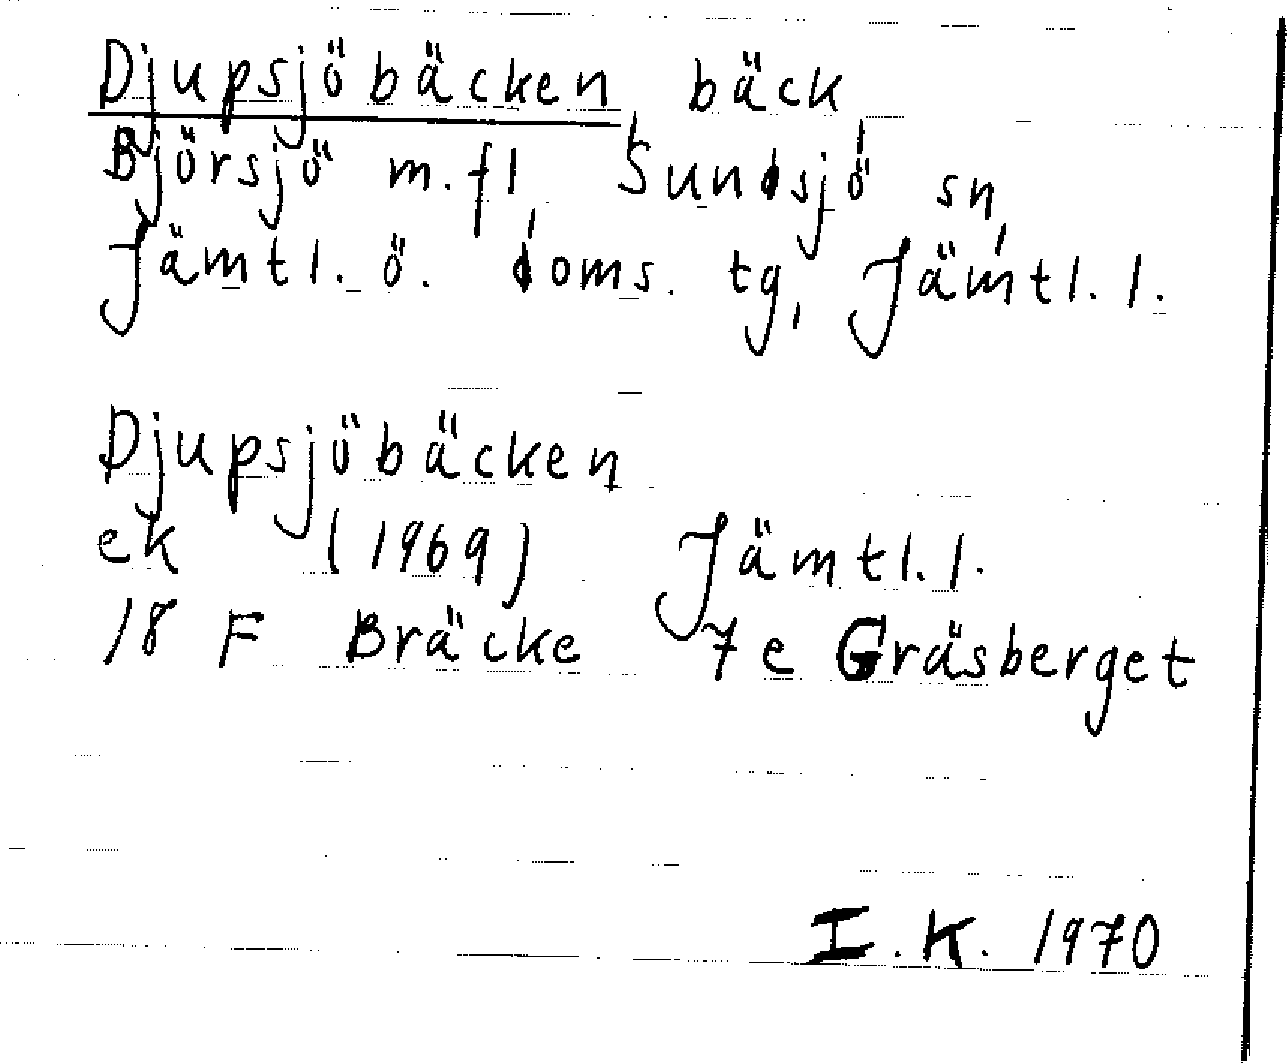 Djupsjöbäcken, bäck,
Björsjö m.fl, Sundsjö sn,
Jämtl. ö. doms. tg, Jämtl. l.
Djupsjöbäcken
ek (1969) Jämtl. l.
18 F Bräcke 7e Gräsberget
I.K. 1970